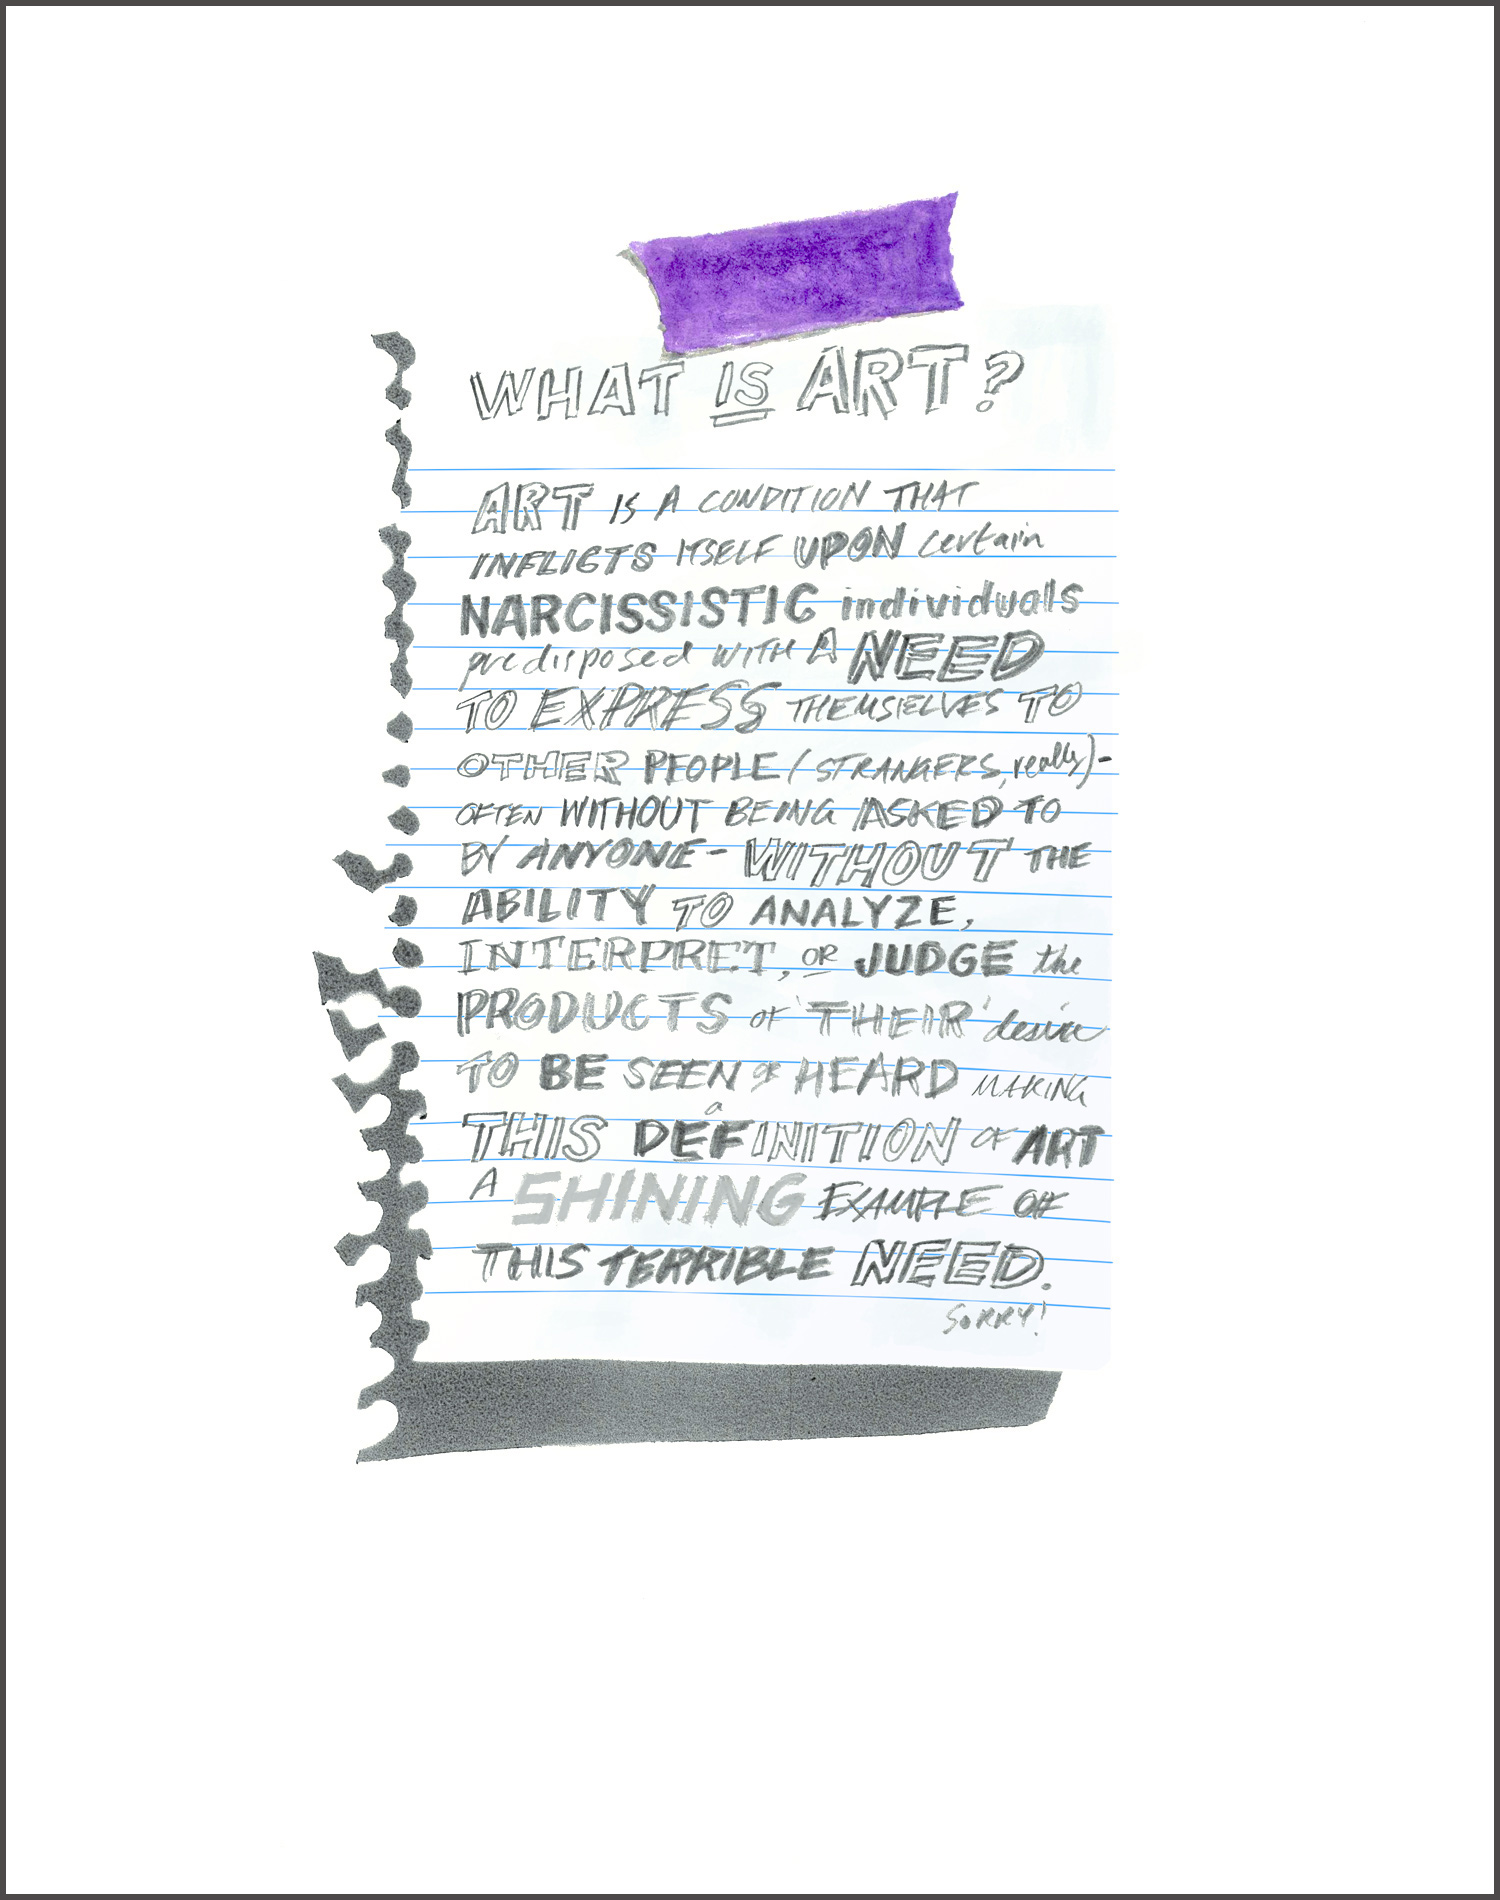 WHAT IS ART?
ART IS A CONDITION THAT
INFLICTS ITSELF UPON certain
NARCISSISTIC individuals
predisposed WITH A NEED
TO EXPRESS THEMSELVES TO
OTHER PEOPLE (STRANGERS, really)-
OFTEN WITHOUT BEING ASKED TO
BY ANYONE - WITHOUT THE
ABILITY TO ANALYZE,
INTERPRET, OR JUDGE the
PRODUCTS OF 'THEIR' desire
TO BE SEEN OR HEARD MAKING
a
THIS DEFINITION OF ART
A SHINING EXAMPLE OF
THIS TERRIBLE NEED.
SORRY!